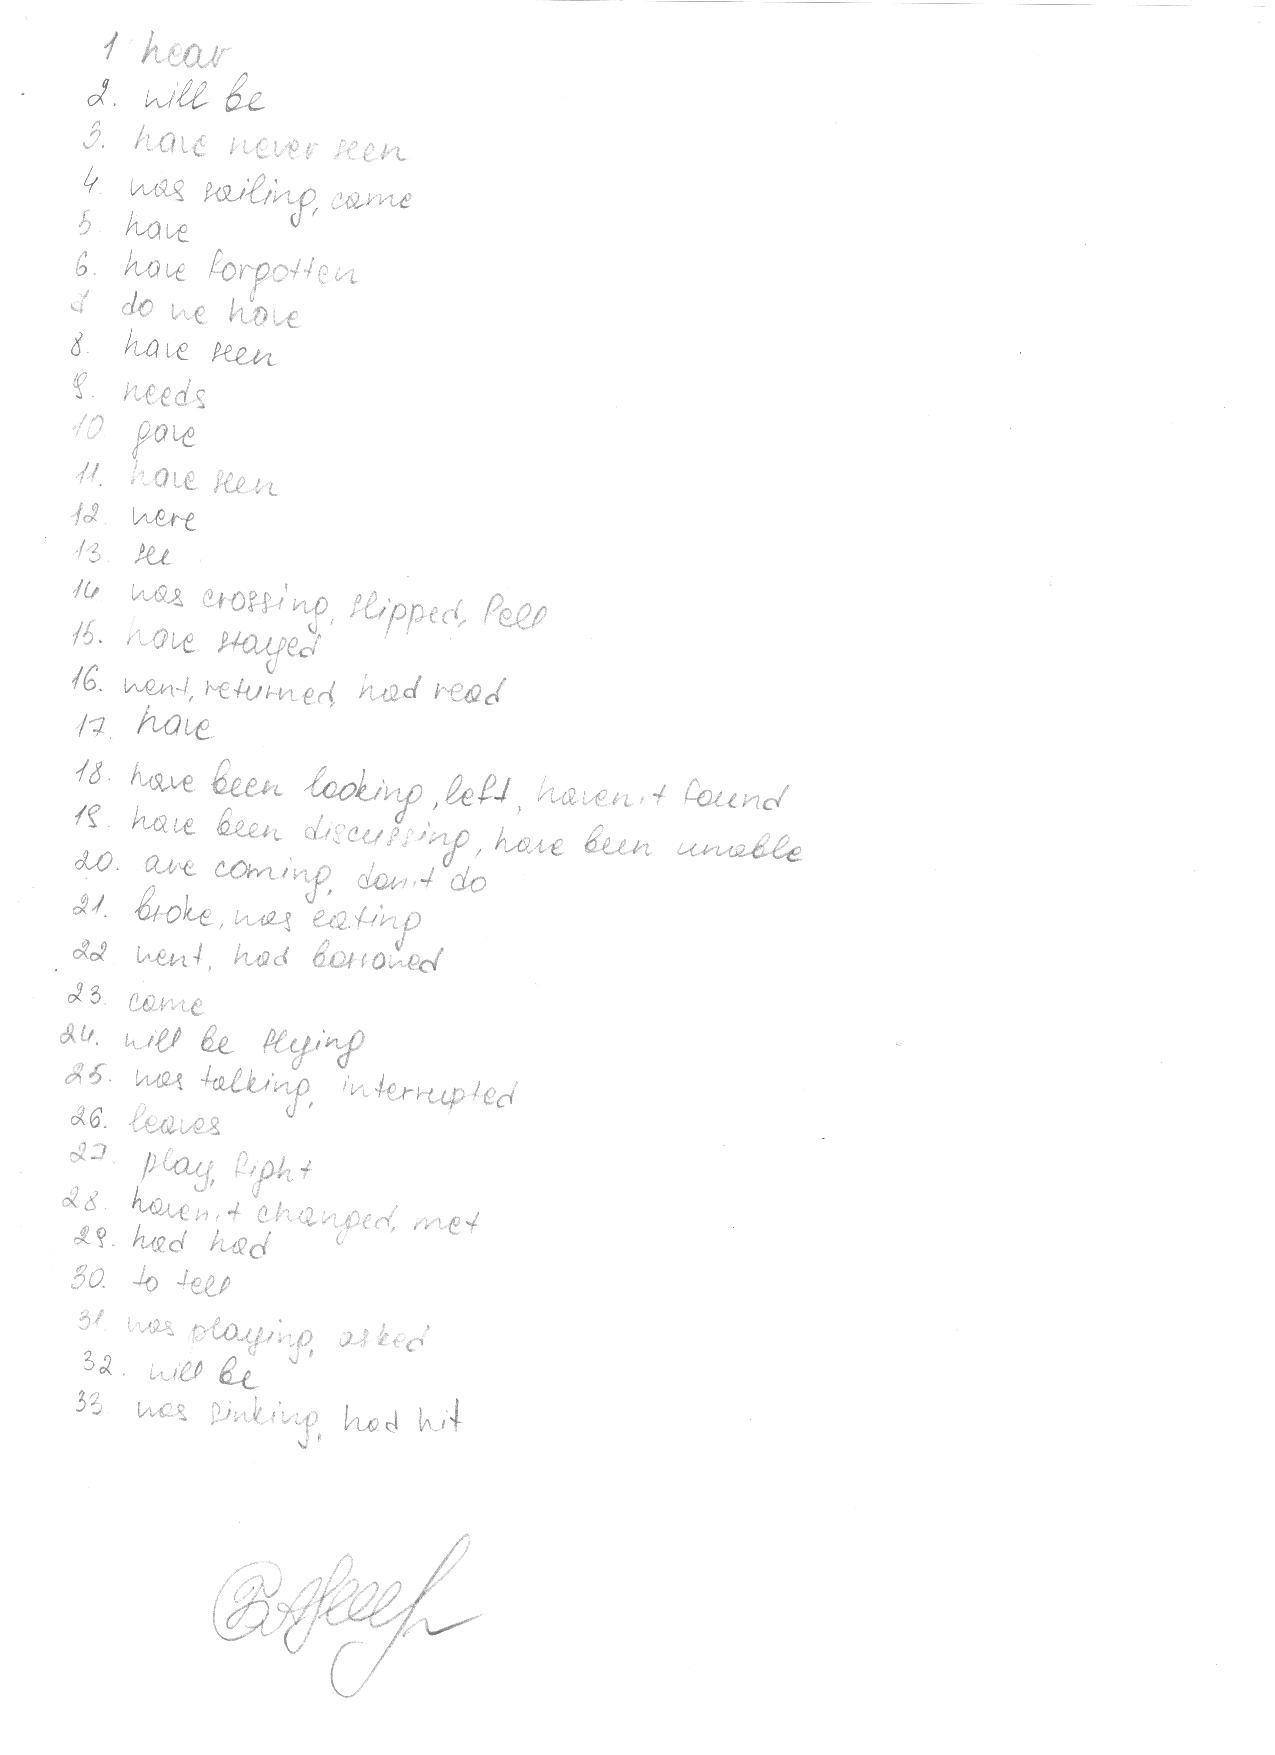 1 hear
2. will be
3. have never seen
4. was sailing, came
5. have
6. have forgotten
7 do we have
8. have seen
9. needs
10 gave
11. have seen
12. were
13. see
14 was crossing, slipped, fell
15. have stayed
16. went, returned, had read
17. have
18. have been looking, left, haven't found
19. have been discussing, have been unable
20. are coming, don't do
21. broke, was eating
22 went, had borrowed
23. came
24. will be flying
25. was talking, interrupted
26. leaves
27. play, fight
28. haven't changed, met
29. had had
30. to tell
31. was playing, asked
32. will be
33 was sinking, had hit